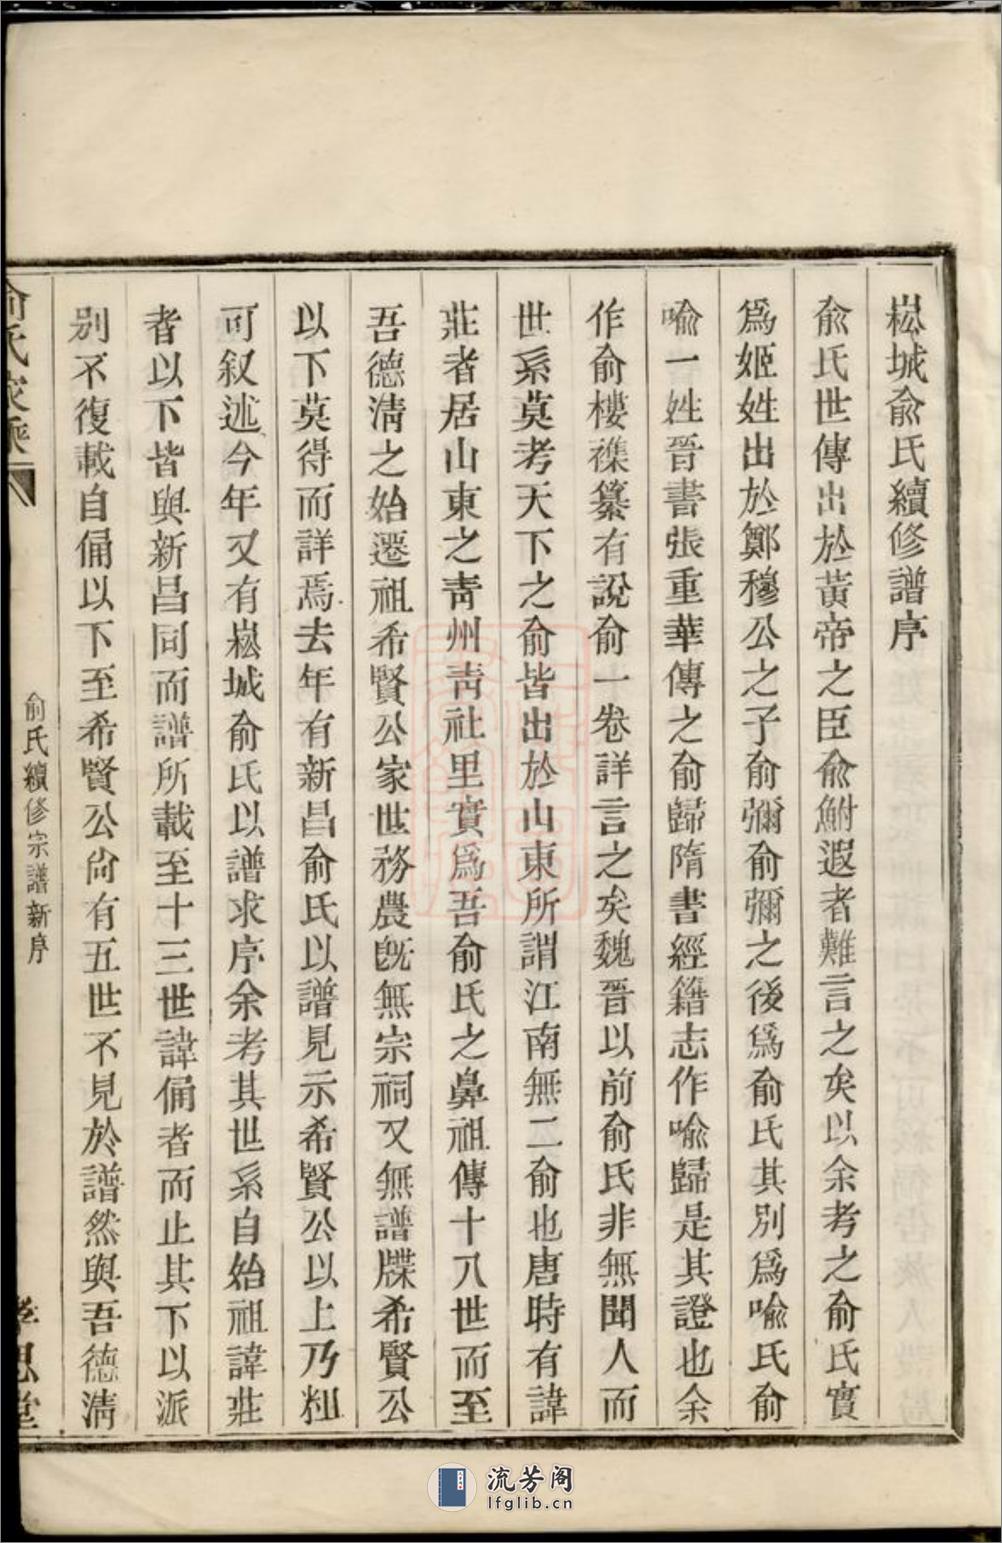 崧城俞氏續修譜序
俞氏世傳出於黃帝之臣俞鮒遐者難言之矣以余考之俞氏實
爲姬姓出於鄭穆公之子俞彌俞彌之後爲俞氏其別爲喻氏俞
喻一姓晉書張重華傳之俞歸隋書經籍志作喻歸是其證也余
作俞樓襍纂有說俞一卷詳言之矣魏晉以前俞氏非無聞人而
世系莫考天下之俞皆出於山東所謂江南無二俞也唐時有諱
莊者居山東之靑州靑社里實爲吾俞氏之鼻祖傳十八世而至
吾德淸之始遷祖希賢公家世務農旣無宗祠又無譜牒希賢公
以下莫得而詳焉去年有新昌俞氏以譜見示希賢公以上乃粗
可叙述今年又有崧城俞氏以譜求序余考其世系自始祖諱莊
者以下皆與新昌同而譜所載至十三世諱俑者而止其下以派
別不復載自俑以下至希賢公尙有五世不見於譜然與吾德淸
俞氏家乘
俞氏續修宗譜新序
孝思堂
流芳阁
lfglib.cn